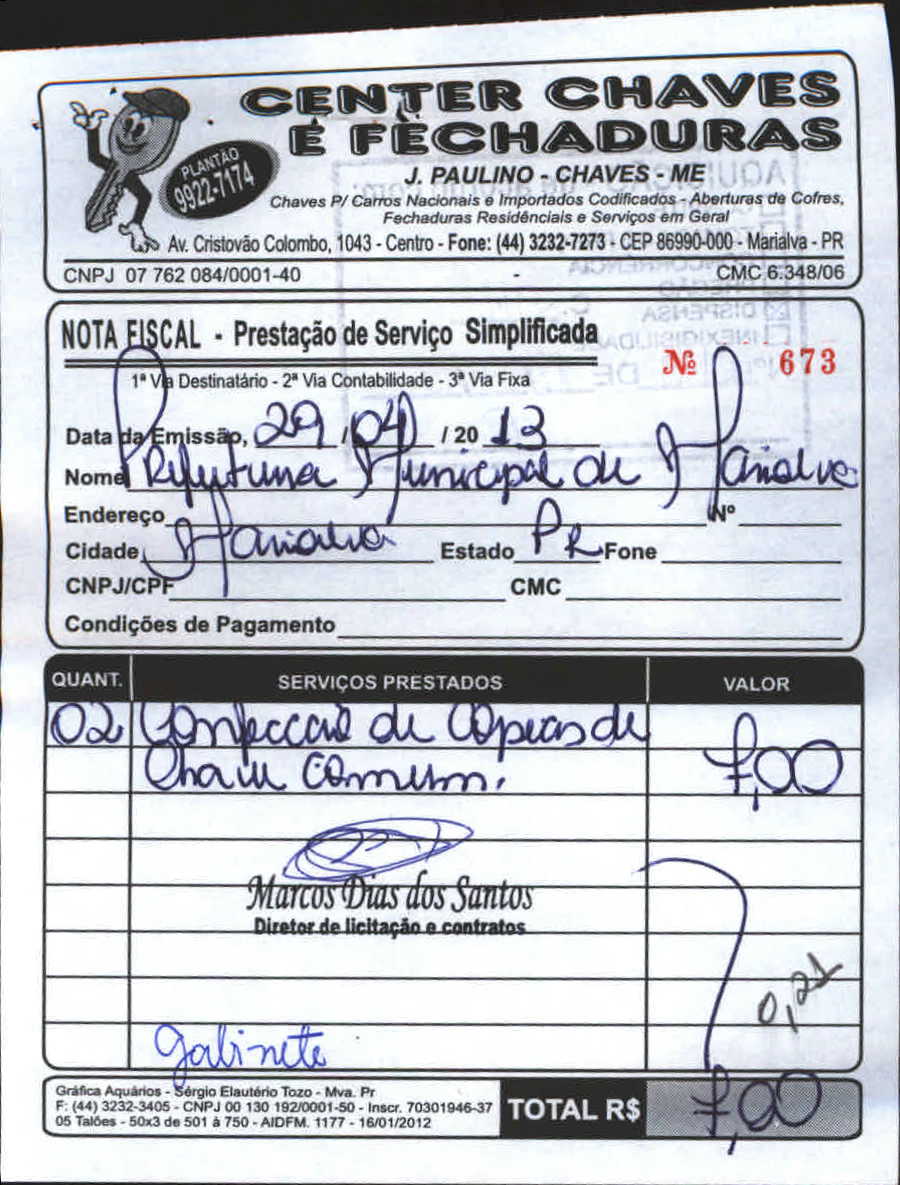 CENTER CHAVES
E FECHADURAS
PLANTÃO
9922-7174
J. PAULINO - CHAVES - ME
Chaves P/ Carros Nacionais e Importados Codificados - Aberturas de Cofres,
Fechaduras Residênciais e Serviços em Geral
Av. Cristovão Colombo, 1043 - Centro - Fone: (44) 3232-7273 - CEP 86990-000 - Marialva - PR
CNPJ 07 762 084/0001-40 CMC 6.348/06
NOTA FISCAL - Prestação de Serviço Simplificada
Nº 673
1ª Via Destinatário - 2ª Via Contabilidade - 3ª Via Fixa
Data da Emissão, 29 / 04 / 20 13
Nome Prefeitura Municipal de Marialva
Endereço Nº
Cidade Marialva Estado PR Fone
CNPJ/CPF CMC
Condições de Pagamento
QUANT. SERVIÇOS PRESTADOS VALOR
02 Confeccão de Copias de
Chave Comum. 7,00
Marcos Dias dos Santos
Diretor de licitação e contratos
0,21
Gabinete
Gráfica Aquários - Sérgio Elautério Tozo - Mva. Pr
F: (44) 3232-3405 - CNPJ 00 130 192/0001-50 - Inscr. 70301946-37
05 Talões - 50x3 de 501 à 750 - AIDFM. 1177 - 16/01/2012
TOTAL R$ 7,00